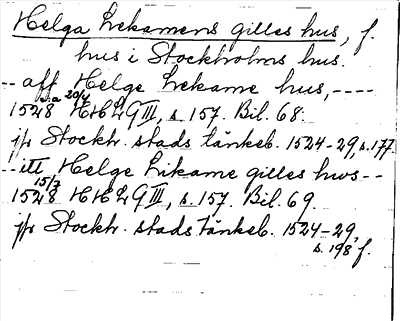 Helga Lekamens gilles hus, f.
hus i Stockholms hus.
-- aff Helge Lekame hus, ----
1528 20/4 HHLG III, s. 157. Bil. 68.
jfr Stockh. stads tänkeb. 1524-29, s. 177.
-- itt Helge Likame gilles hws --
1528 15/7 HHLG III, s. 157. Bil. 69.
jfr Stockh. stads tänkeb. 1524-29,
s. 198 f.